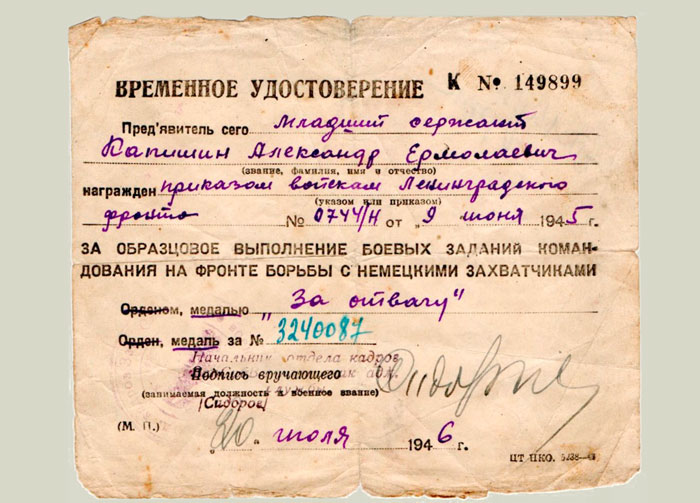 ВРЕМЕННОЕ УДОСТОВЕРЕНИЕ К № 149899
Пред'явитель сего Младший сержант
Капишин Александр Ермолаевич
(звание, фамилия, имя и отчество)
награжден приказом войскам Ленинградского
(указом или приказом)
фронта № 0744/Н от „9 июня 1945 г.
ЗА ОБРАЗЦОВОЕ ВЫПОЛНЕНИЕ БОЕВЫХ ЗАДАНИЙ КОМАН-
ДОВАНИЯ НА ФРОНТЕ БОРЬБЫ С НЕМЕЦКИМИ ЗАХВАТЧИКАМИ
Орденом, медалью „За отвагу"
Орден, медаль за № 3240087
Начальник отдела кадров
Подпись вручающего адм.
службы
(занимаемая должность и военное звание)
(Сидоров)
(М. П.) „20" июля 1946 г.
ЦТ НКО.